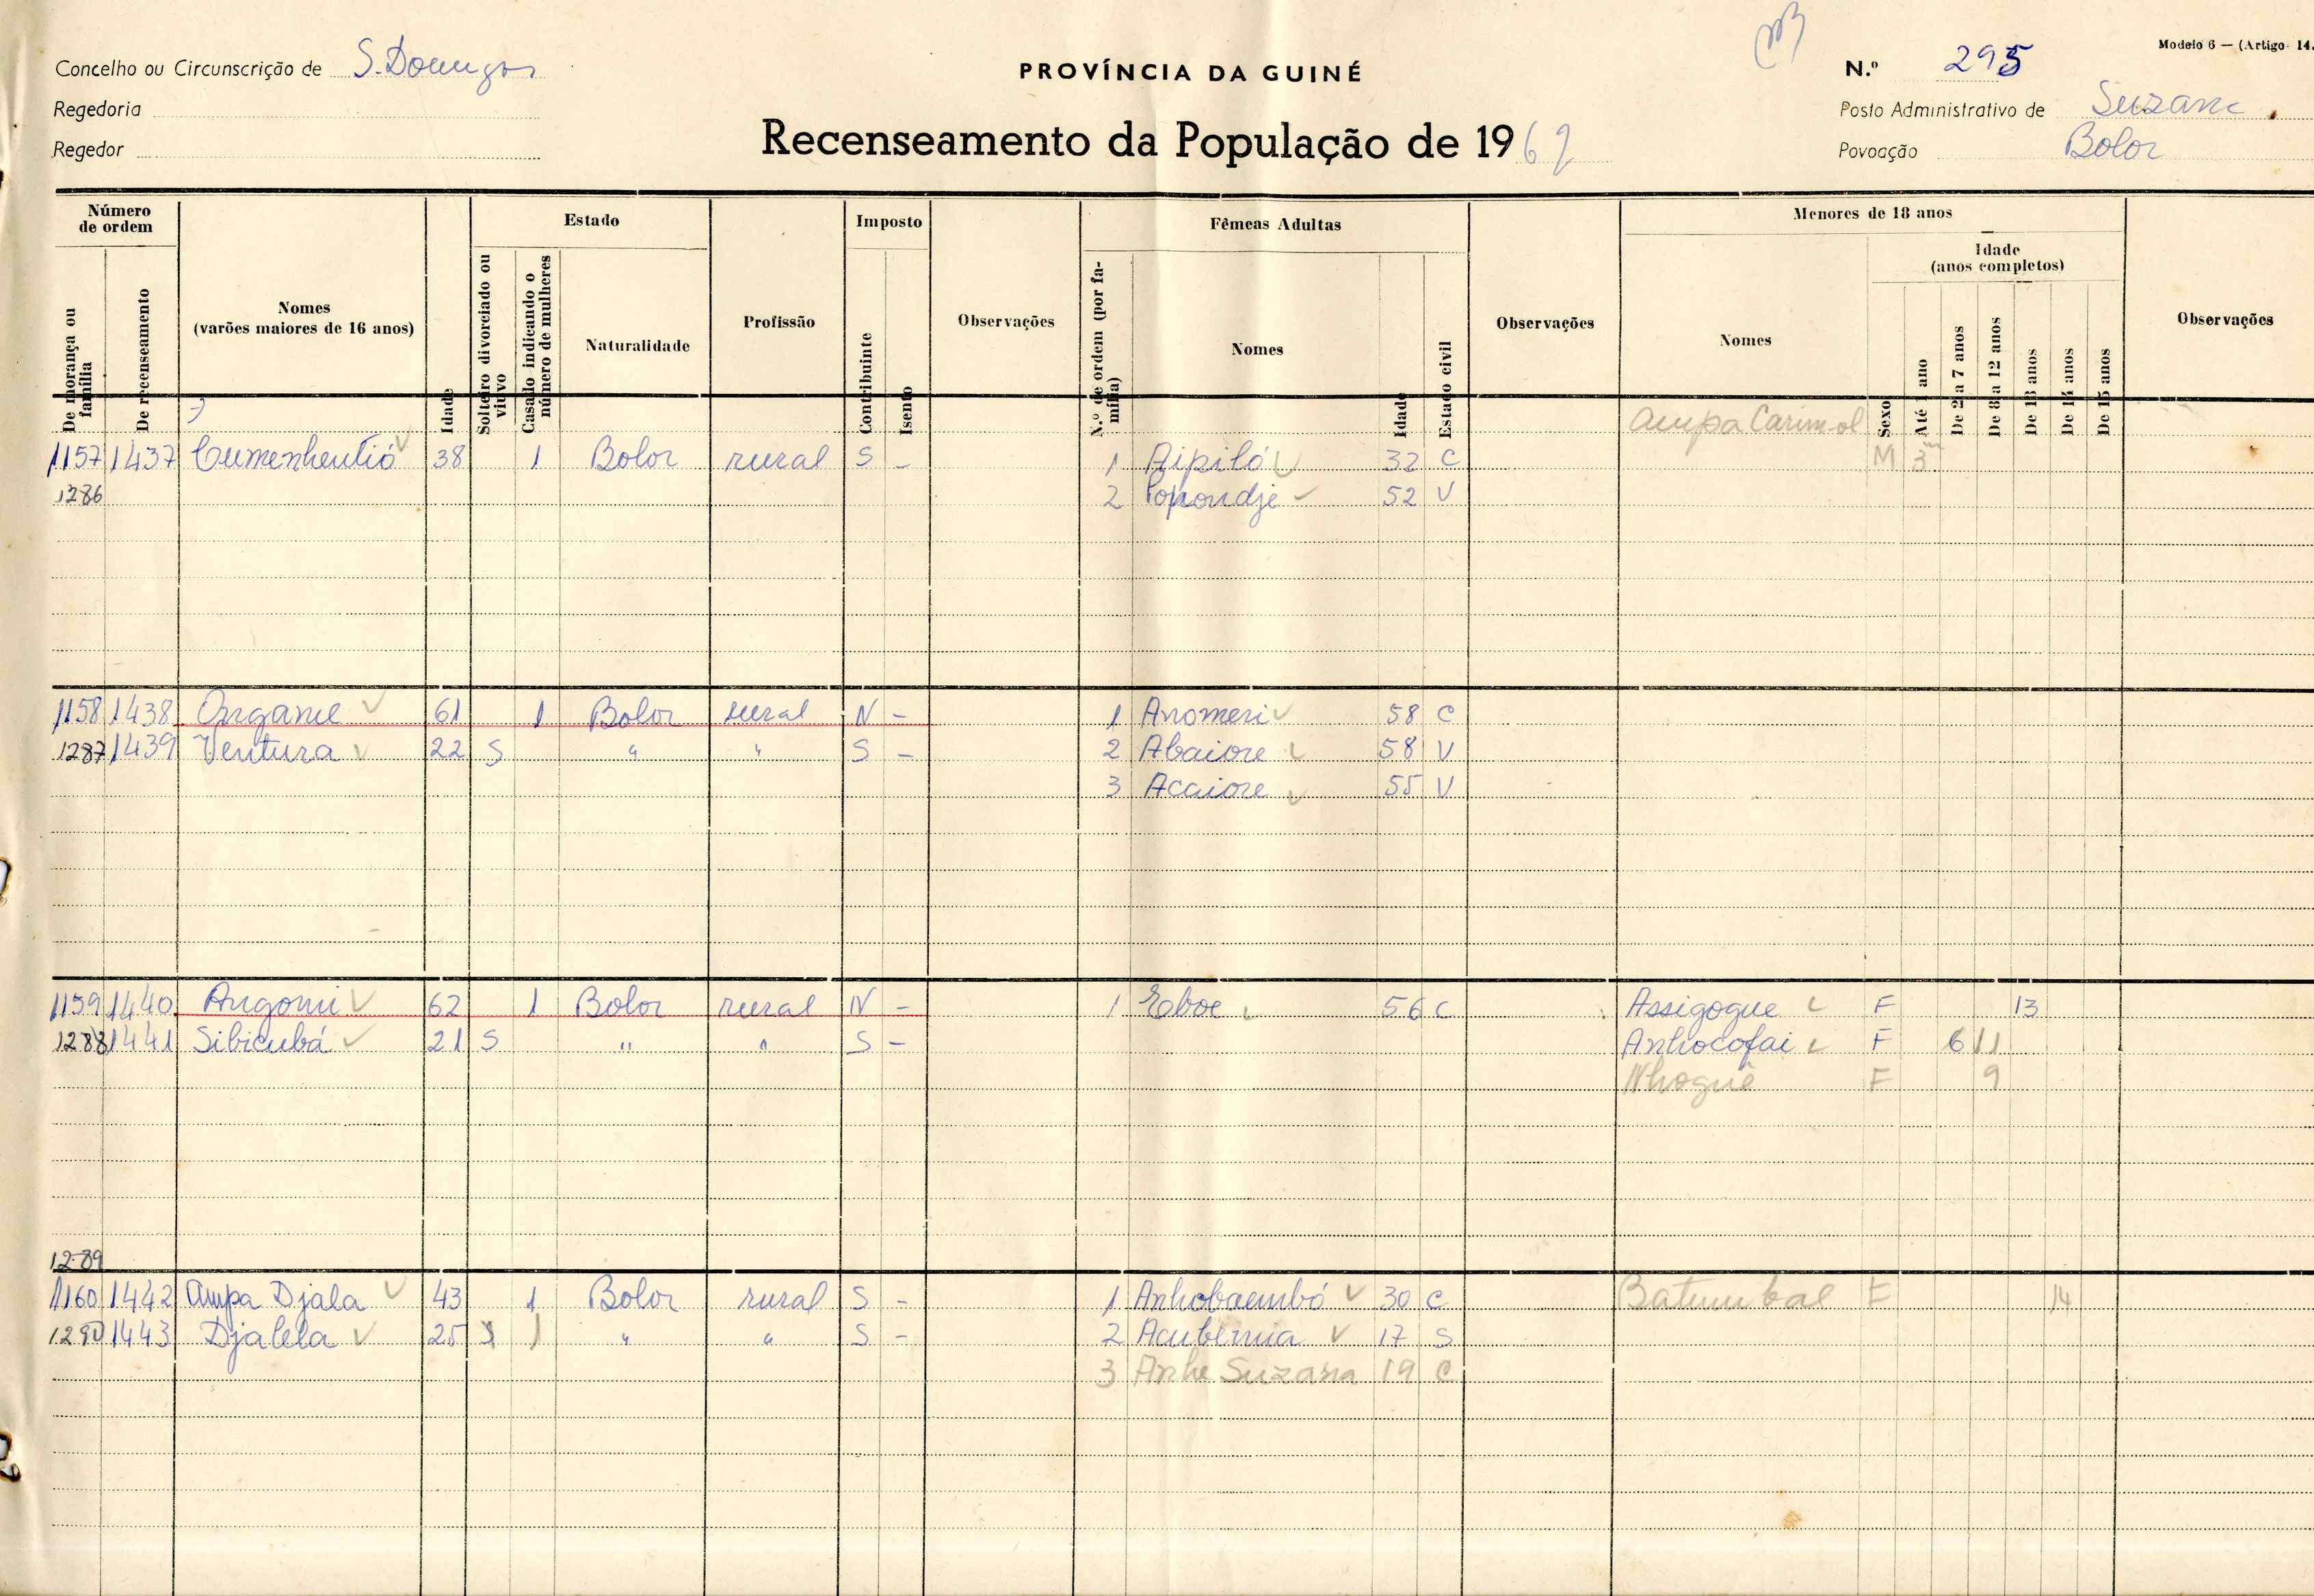 Concelho ou Circunscrição de S. Domingos
PROVÍNCIA DA GUINÉ
N.º 295
Modelo 6 — (Artigo 14.
Regedoria
Posto Administrativo de Suzana
Regedor
Recenseamento da População de 1969
Povoação Bolor
Número de ordem
De morança ou família
De recenseamento
Nomes (varões maiores de 16 anos)
Idade
Estado
Solteiro divorciado ou viuvo
Casado indicando o número de mulheres
Naturalidade
Profissão
Imposto
Contribuinte
Isento
Observações
Fêmeas Adultas
N.º de ordem (por família)
Nomes
Idade
Estado civil
Observações
Menores de 18 anos
Nomes
Sexo
Idade (anos completos)
Até 1 ano
De 2 a 7 anos
De 8 a 12 anos
De 13 anos
De 14 anos
De 15 anos
Observações
Ampa Carimol
1157 1437 Cumenheutió 38 1 Bolor rural S - 1 Aipiló 32 C M 3m
1286 2 Popondje 52 V
1158 1438 Organe 61 1 Bolor rural N - 1 Anomeri 58 C
1287 1439 Ventura 22 S " " S - 2 Abaiore 58 V
3 Acaiore 55 V
1159 1440 Angomi 62 1 Bolor rural N - 1 Eboe 56 C Assigogue F 13
1288 1441 Sibicubá 21 S " " S - Anhocofai F 6 11
Nhoguê F 9
1289
1160 1442 Ampa Djala 43 1 Bolor rural S - 1 Anhobaembó 30 C Batumbal F 14
1290 1443 Djalela 25 S 1 " " S - 2 Acubemia 17 S
3 Anhe Suzana 19 C